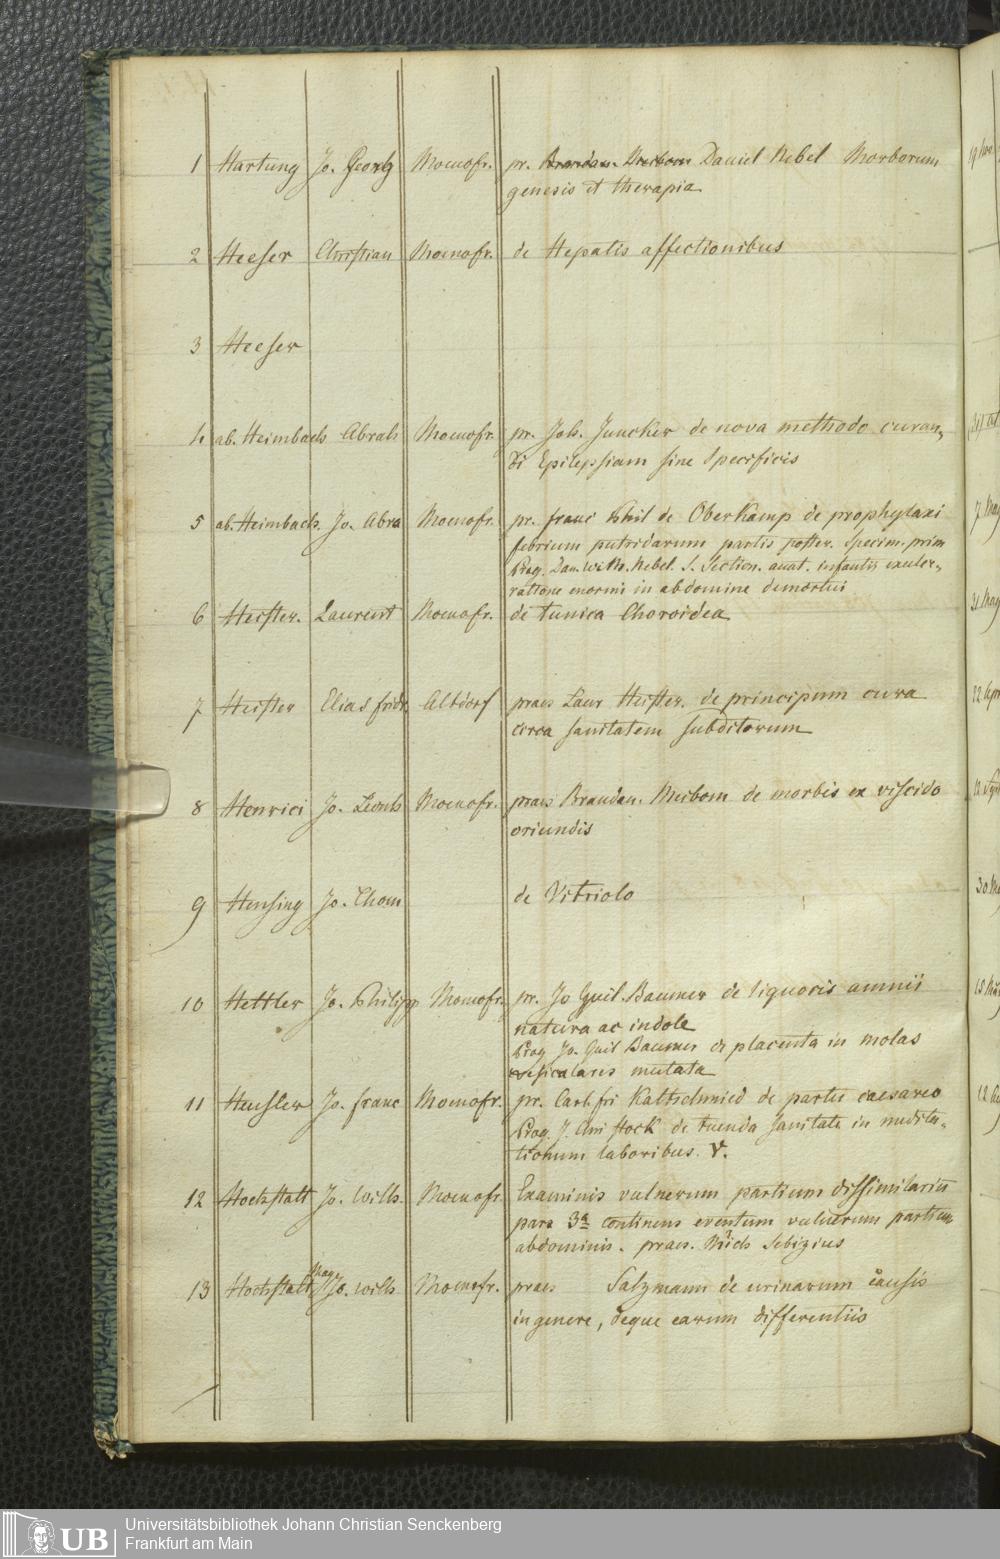 1 Hartung Jo. Georg Moenofr. pr. Daniel Nebel Morborum
genesis et therapia
2 Heeser Christian Moenofr. de Hepatis affectionibus
3 Heeser
4 ab. Heimbach Abrah Moenofr. pr. Joh. Juncker de nova methodo curan,
di Epilepsiam sine Specificis
5 ab. Heimbach. Jo. Abra Moenofr. pr. franc Phil de Oberkamp de prophylaxi
febrium putridarum partis poster. Specim. prim
Prog. Dan. Wilh. Nebel. S. Section. anat. infantis exulce,,
ratione enormi in abdomine demortui
6 Heister. Laurent Moenofr. de tunica Choroidea
7 Heister Elias fridr. Altdorf praes Laur Heister. de principum cura
circa sanitatem subditorum
8 Henrici Jo. Leonh Moenofr. praes Brandan. Meibom de morbis ex viscido
oriundis
9 Hensing Jo. Thom de Vitriolo
10 Hettler Jo. Philipp Moenofr. pr. Jo Guil. Baumer de liquoris amnii
natura ac indole
Prog Jo. Guil Baumer de placenta in molas
vesiculares mutata
11 Heusler Jo. franc Moenofr. pr. Carl. fri Kaltschmied de partu caesareo
Prog. J. Chri stock de tuenda sanitate in medita,,
tionum laboribus. V.
12 Hochstatt Jo. Wilh. Moenofr. Examinis vulnerum partium dissimilarium
pars 3a continens eventum vulnerum partium
abdominis. praes. Mich Sebizius
13 Hochstatt Jo. Wilh Moenofr. praes Salzmann de urinarum causis
in genere, deque earum differentiis
UB Universitätsbibliothek Johann Christian Senckenberg
Frankfurt am Main